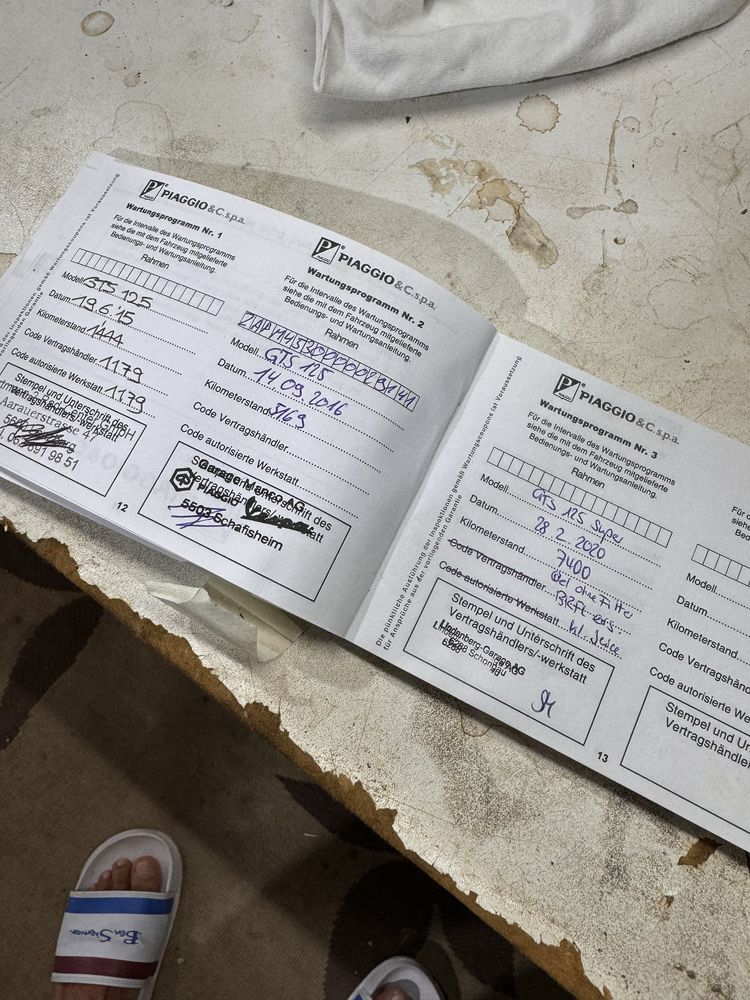 PIAGGIO & C. s.p.a.
Wartungsprogramm Nr. 1
Für die Intervalle des Wartungsprogramms
siehe die mit dem Fahrzeug mitgelieferte
Bedienungs- und Wartungsanleitung.
Rahmen
Modell GTS 125
Datum 19.6.15
Kilometerstand 1444
Code Vertragshändler 1179
Code autorisierte Werkstatt 1179
Stempel und Unterschrift des
Vertragshändlers/-werkstatt
Aarauerstrasse
12
PIAGGIO & C. s.p.a.
Wartungsprogramm Nr. 2
Für die Intervalle des Wartungsprogramms
siehe die mit dem Fahrzeug mitgelieferte
Bedienungs- und Wartungsanleitung.
Rahmen
Modell GTS 125
Datum 14 09 2016
Kilometerstand
Code Vertragshändler
Code autorisierte Werkstatt
Stempel und Unterschrift des
Vertragshändlers/-werkstatt
Garage Manco AG
PIAGGIO
5503 Schafisheim
Die pünktliche Ausführung der Inspektionen gemäß Wartungscoupons ist Voraussetzung
für Ansprüche aus der vorliegenden Garantie
PIAGGIO & C. s.p.a.
Wartungsprogramm Nr. 3
Für die Intervalle des Wartungsprogramms
siehe die mit dem Fahrzeug mitgelieferte
Bedienungs- und Wartungsanleitung.
Rahmen
Modell GTS 125 Super
Datum 28 2 2020
Kilometerstand 7400
Code Vertragshändler
Code autorisierte Werkstatt
Stempel und Unterschrift des
Vertragshändlers/-werkstatt
Lindenberg-Garage AG
6288 Schongau
13
Modell
Datum
Kilometerstand
Code Vertragshändler
Code autorisierte
Stempel und
Vertragshändlers
Ben Sherman